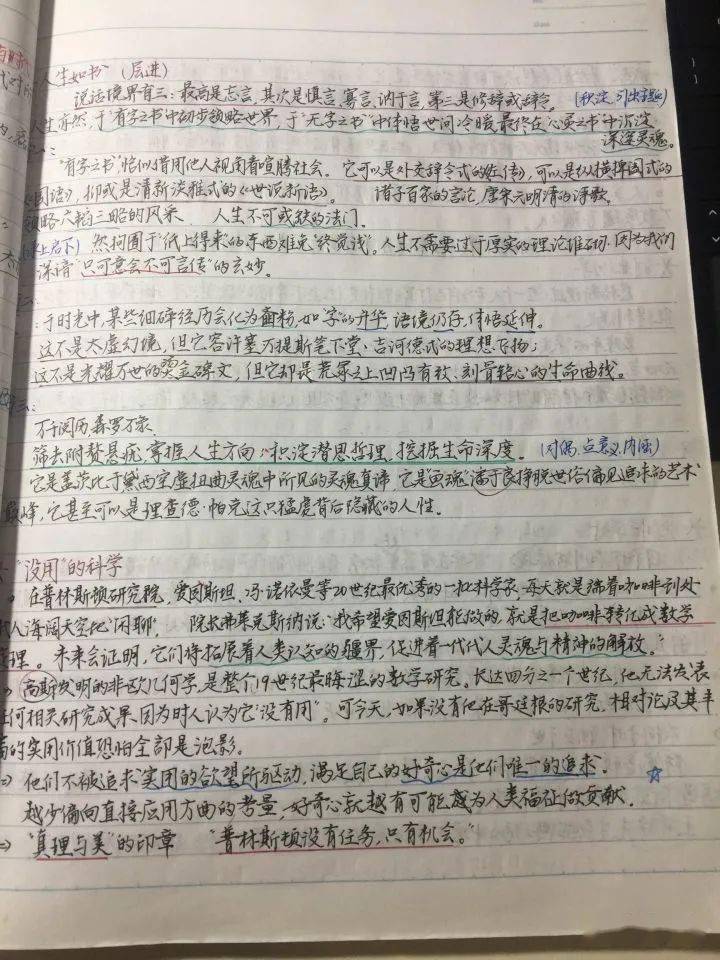 人生如书 (层进)
说话境界有三:最高是忘言,其次是慎言、寡言、讷于言,第三是修辞或辞令。(积淀,引出话题)
人生亦然,于"有字之书"中初步领略世界,于"无字之书"中体悟世间冷暖,最终在"心灵之书"中沉淀
深邃灵魂。
"有字之书"恰似借用他人视角看喧腾社会。它可以是外交辞令式的《左传》,可以是纵横捭阖式的
《国语》,抑或是清新淡雅式的《世说新语》。 诸子百家的言论,唐宋元明清的诗歌,
领略六韬三略的风采、 人生不可或缺的法门。
(承上启下) 然拘囿于"纸上得来"的东西难免"终觉浅"。人生不需要过于厚实的理论堆砌,因为我们
深谙"只可意会不可言传"的玄妙。
:于时光中,某些细碎经历会化为齑粉,如"字"的升华,语境仍存,体悟延伸。
这不是太虚幻境,但它容许塞万提斯笔下堂·吉诃德式的理想飞扬;
这不是光耀万世的烫金碑文,但它却是荒冢之上凹凸有致、刻骨铭心的生命曲线。
万千阅历,森罗万象、
筛去附赘悬疣,掌握人生方向;积淀潜思哲理,挖掘生命深度。(对偶,点意义内涵)
它是盖茨比于黛西空虚扭曲灵魂中所见的灵魂真谛,它是"画魂"潘于良挣脱世俗偏见追求的艺术
巅峰,它甚至可以是理查德·帕克这只猛虎背后隐藏的人性。
"没用"的科学
在普林斯顿研究院,爱因斯坦、冯·诺依曼等20世纪最优秀的一批科学家,每天就是端着咖啡到处
找人海阔天空地"闲聊"。 院长弗莱克斯纳说:"我希望爱因斯坦能做的,就是把咖啡转化成数学
定理。未来会证明,它们将拓展着人类认知的疆界,促进着一代代人灵魂与精神的解放。"
⇒ 高斯发明的非欧几何学,是整个19世纪最晦涩的数学研究。长达四分之一个世纪,他无法发表
任何相关研究成果,因为时人认为它"没有用"。可今天,如果没有他在哥廷根的研究,相对论及其丰
富的实用价值恐怕全部是泡影。
⇒ 他们不被追求实用的欲望所驱动,满足自己的好奇心是他们唯一的追求。 ☆
越少偏向直接应用方面的考量,好奇心就越有可能越为人类福祉做贡献。
⇒ "真理与美"的印章 "普林斯顿没有任务,只有机会。"